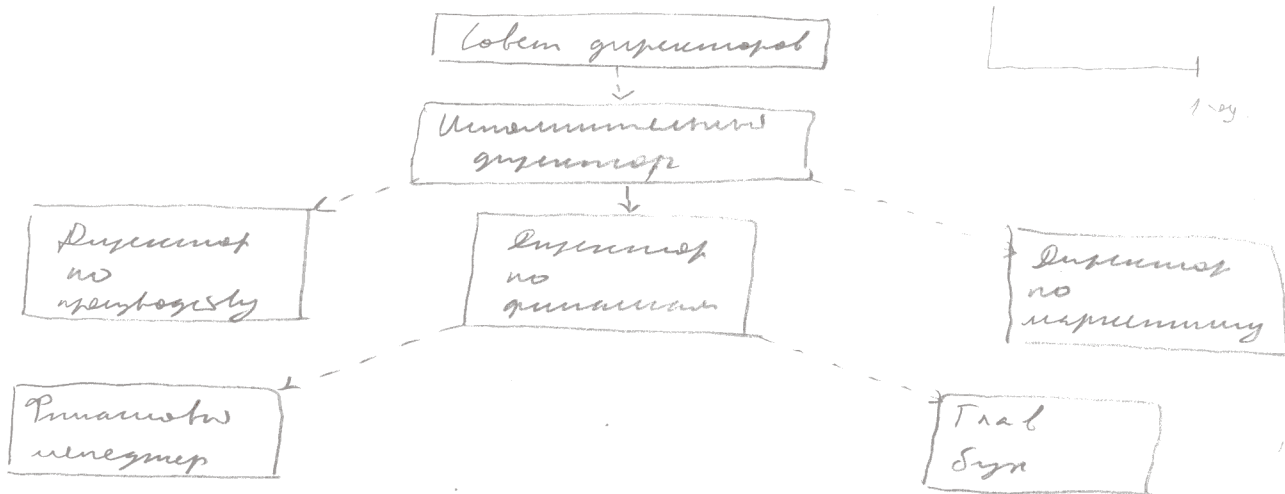 Совет директоров
Исполнительный
директор
Директор
по
производству
Директор
по
финансам
Директор
по
маркетингу
Финансовый
менеджер
Глав
бух